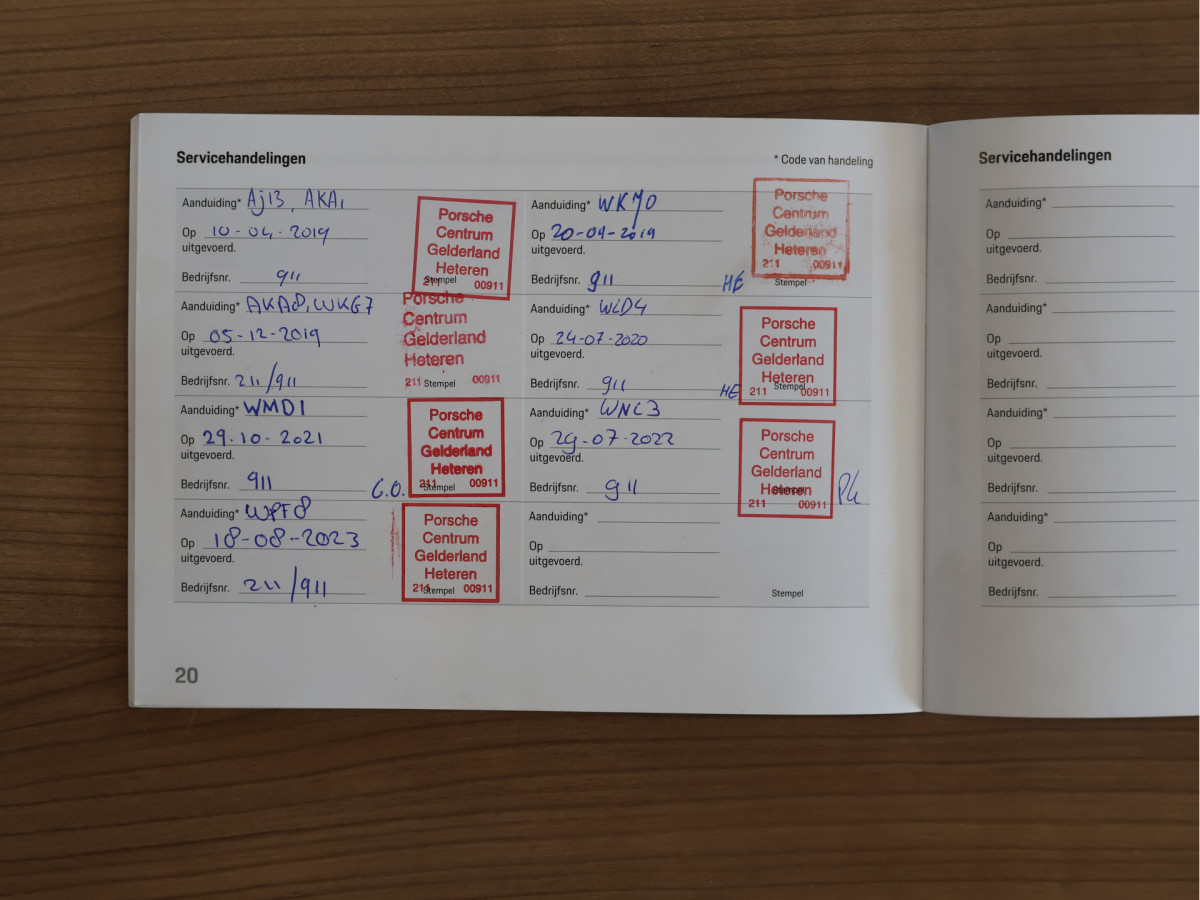 Servicehandelingen
* Code van handeling
Aanduiding* AJ13, AKA1
Op 10-04-2019
uitgevoerd.
Bedrijfsnr. 911
Porsche
Centrum
Gelderland
Heteren
211 Stempel 00911
Aanduiding* WKY0
Op 20-09-2019
uitgevoerd.
Bedrijfsnr. 911
HE
Porsche
Centrum
Gelderland
Heteren
211 00911
Stempel
Aanduiding* AKA8, WKG7
Op 05-12-2019
uitgevoerd.
Bedrijfsnr. 211/911
Porsche
Centrum
Gelderland
Heteren
211 Stempel 00911
Aanduiding* WLD4
Op 24-07-2020
uitgevoerd.
Bedrijfsnr. 911
HE
Porsche
Centrum
Gelderland
Heteren
211 Stempel 00911
Aanduiding* WMD1
Op 29-10-2021
uitgevoerd.
Bedrijfsnr. 911
G.O.
Porsche
Centrum
Gelderland
Heteren
211 Stempel 00911
Aanduiding* WNC3
Op 29-07-2022
uitgevoerd.
Bedrijfsnr. 911
Porsche
Centrum
Gelderland
Heteren
Stempel
211 00911
Aanduiding* WPF8
Op 18-08-2023
uitgevoerd.
Bedrijfsnr. 211/911
Porsche
Centrum
Gelderland
Heteren
211 Stempel 00911
Aanduiding*
Op
uitgevoerd.
Bedrijfsnr.
Stempel
20
Servicehandelingen
Aanduiding*
Op
uitgevoerd.
Bedrijfsnr.
Aanduiding*
Op
uitgevoerd.
Bedrijfsnr.
Aanduiding*
Op
uitgevoerd.
Bedrijfsnr.
Aanduiding*
Op
uitgevoerd.
Bedrijfsnr.